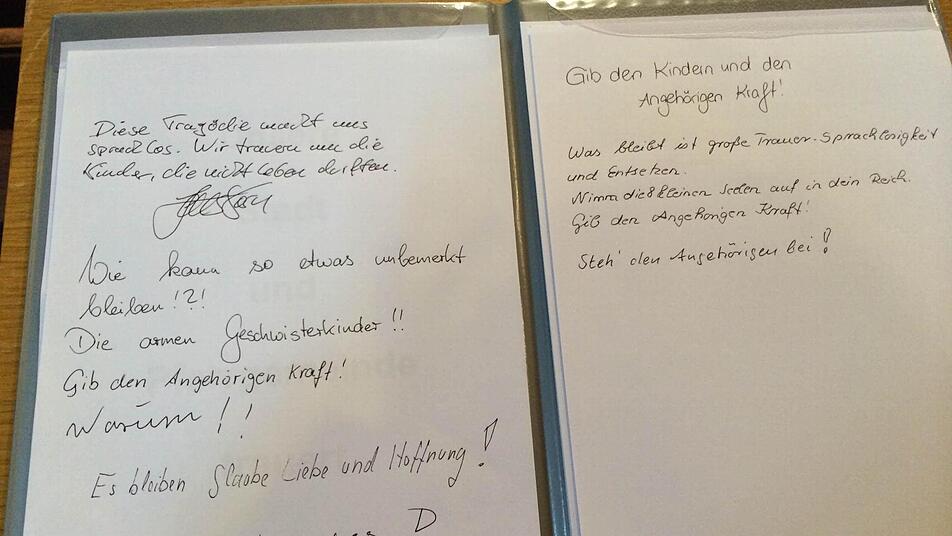 Diese Tragödie macht uns
sprachlos. Wir trauern um die
Kinder, die nicht leben durften.
Wie kann so etwas unbemerkt
bleiben!?!
Die armen Geschwisterkinder!!
Gib den Angehörigen Kraft!
Warum!!
Es bleiben Glaube Liebe und Hoffnung!
D
Gib den Kindern und den
Angehörigen Kraft!
Was bleibt ist große Trauer. Sprachlosigkeit
und Entsetzen.
Nimm die 8 kleinen Seelen auf in dein Reich.
Gib den Angehörigen Kraft!
Steh' den Angehörigen bei!